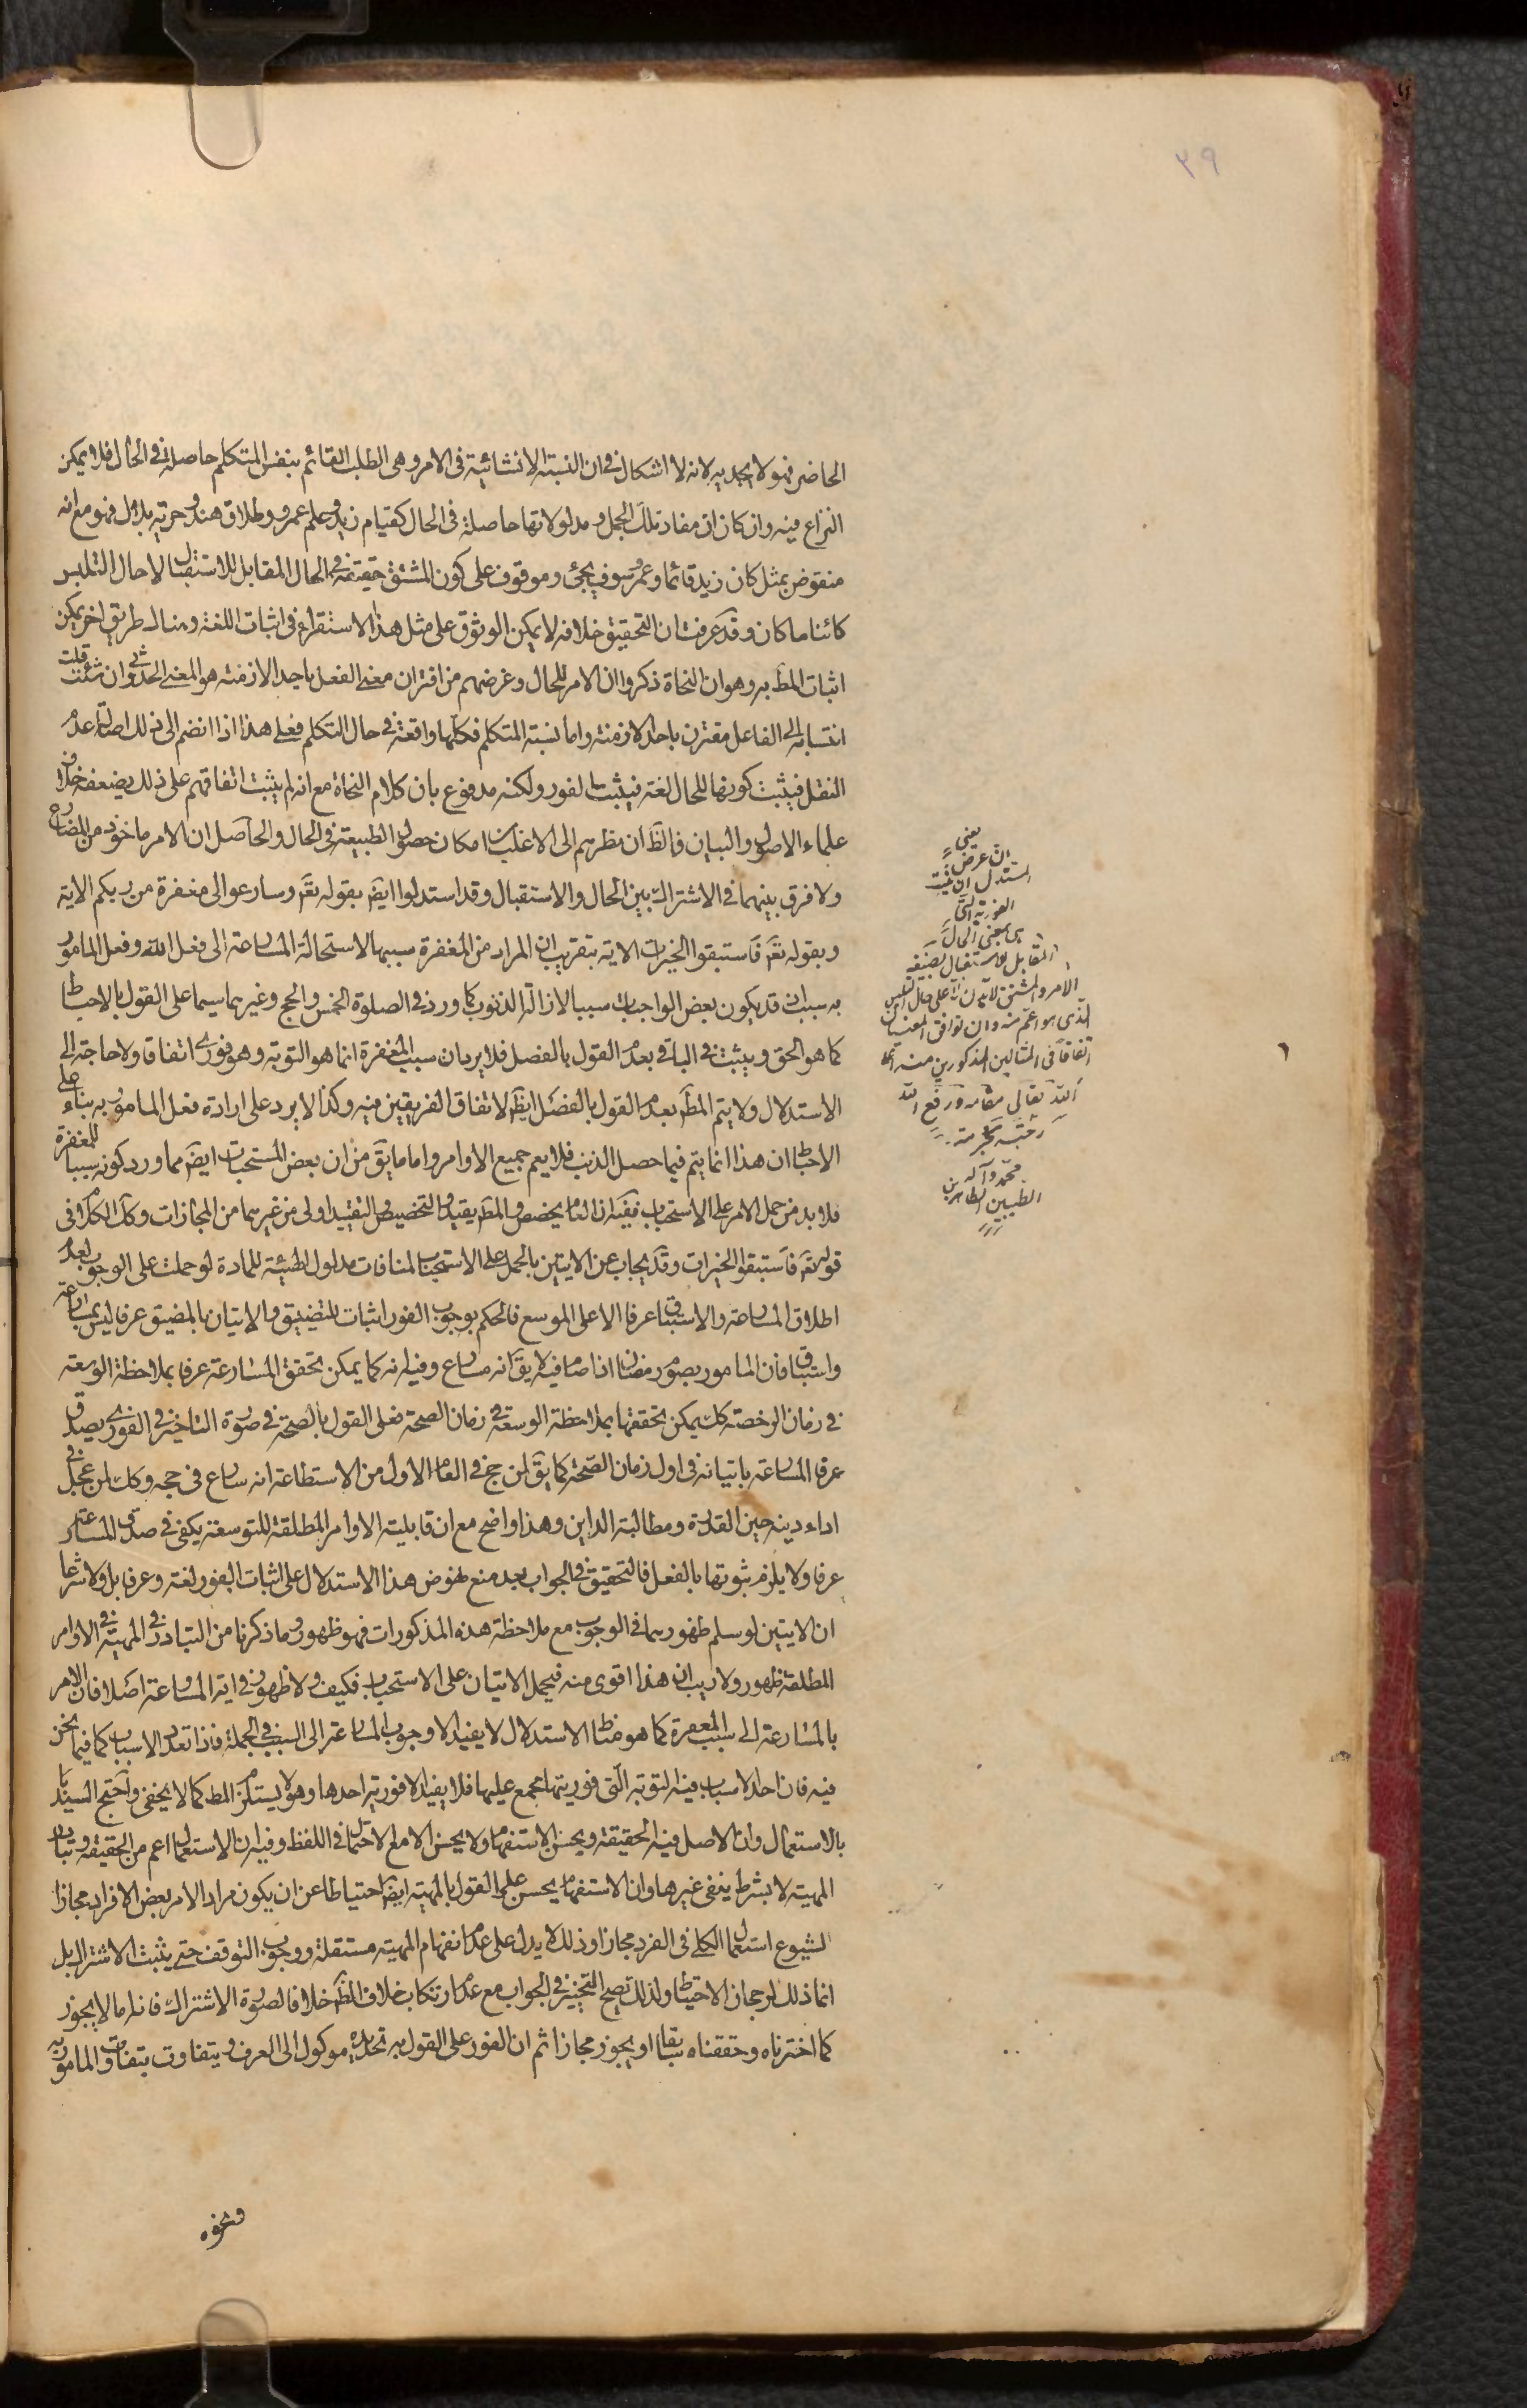 ٢٩
الحاضر فهو لا يجديه لانه لا اشكال فى ان النسبة الانشائية فى الامر وهى الطلب القائم بنفس المتكلم حاصلة فى الحال فلا يمكن
النزاع فيه وان كان ان مفاد تلك الجمل و مدلولاتها حاصلة فى الحال كقيام زيد وعلم عمرو وطلاق هند وحرية بلال فهو مع انه
منقوض بمثل كان زيد قائما وعمرو سوف يجئ وموقوف على كون المشتق حقيقة فى الحال المقابل للاستقبال لا حال التلبس
كائنا ما كان وقد عرفت ان التحقيق خلافه لا يمكن الوثوق على مثل هذا الاستقراء فى اثبات اللغة وهنا طريق اخر يمكن
اثبات المط به وهو ان النحاة ذكروا ان الامر للحال وغرضهم من اقتران معنى الفعل باحد الازمنة هو المعنى الحدثى وان شئت قلت
انتسابه الى الفاعل مقترن باحد الازمنة واما نسبة المتكلم فكلها واقعة فى حال التكلم فعلى هذا اذا انضم الى ذلك اصالة عدم
النقل فيثبت كونها للحال لغة فيثبت الفور ولكنه مدفوع بان كلام النحاة مع انه لم يثبت اتفاقهم على ذلك يضعفه خلاف
علماء الاصول والبيان فالظ ان نظرهم الى الاغلب امكان حصول الطبيعة فى الحال والحاصل ان الامر ماخوذ من المضارع
ولا فرق بينهما فى الاشتراك بين الحال والاستقبال وقد استدلوا ايضَ بقوله تعَ وسارعوا الى مغفرة من ربكم الاية
وبقوله تعَ فاستبقوا الخيرات الاية بتقريب ان المراد من المغفرة سببها لاستحالة المسارعة الى فعل الله وفعل المامور
به سبب ان قد يكون بعض الواجبات سببا لازالة الذنوب كما ورد فى الصلوة الخمس والحج وغيرهما سيما على القول بالاحباط
كما هو الحق ويثبت فى الباقى بعدم القول بالفصل فلا يرد ان سبب المغفرة انما هو التوبة وهو فورى اتفاقا ولا حاجة الى
الاستدلال ولا يتم المط بعدم القول بالفصل ايضَ لاتفاق الفريقين فيه وكذا لا يرد على ارادة فعل المامور به بناء على
الاحباط ان هذا انما يتم فيما حصل الذنب فلا يعم جميع الاوامر واما ما يقَ من ان بعض المستحبات ايضَ مما ورد كونه سببا للمغفرة
فلا بد من حمل الامر على الاستحباب ففيه ان العام يخصص والمط يقيد والتخصيص والتقييد اولى من غيرهما من المجازات وكك الكلام فى
قوله تعَ فاستبقوا الخيرات وقد يجاب عن الايتين بالحمل على الاستحباب لمنافات مدلول الهيئة للمادة لو حملت على الوجوب لعدم
اطلاق المسارعة والاستباق عرفا الا على الموسع فالحكم بوجوب الفور اثبات للتضييق والاتيان بالمضيق عرفا ليس بمسارعة
واستباق فان المامور بصوم رمضان اذا صام فيه لا يقَ انه مسارع وفيه انه كما يمكن تحقق المسارعة عرفا بملاحظة الوسعة
فى زمان الرخصة كك يمكن تحققها بملاحظة الوسعة فى زمان الصحة فعلى القول بالصحة فى صورة التاخير فى الفورى يصدق
عرفا المسارعة باتيانه فى اول زمان الصحة كما يقَ لمن حج فى العام الاول من الاستطاعة انه سارع فى حجه وكك لمن عجل فى
اداء دينه حين القدرة ومطالبة الداين وهذا واضح مع ان قابلية الاوامر المطلقة للتوسعة يكفى فى صدق المسارعة
عرفا ولا يلزم ثبوتها بالفعل فالتحقيق فى الجواب بعد منع نهوض هذا الاستدلال على اثبات الفور لغة وعرفا بل ولا شرعا
ان الايتين لو سلم ظهورهما فى الوجوب مع ملاحظة هذه المذكورات فهو ظهور وما ذكرنا من التبادر فى المهية فى الاوامر
المطلقة ظهور ولا ريب ان هذا اقوى منه فيحمل الايتان على الاستحباب فكيف ولا ظهور فى اية المسارعة اصلا فان الامر
بالمسارعة الى سبب المغفرة كما هو مناط الاستدلال لا يفيد الا وجوب المسارعة الى السبب فى الجملة فاذا تعدد الاسباب كما فيما نحن
فيه فان احد الاسباب فيه التوبة التى فوريتها مجمع عليها فلا يفيد الا فورية احدها وهو لا يستلزم المط كما لا يخفى واحتج السيد
بالاستعمال وان الاصل فيه الحقيقة وبحسن الاستفهام ولا يحسن الا مع الاحتمال فى اللفظ وفيه ان الاستعمال اعم من الحقيقة وتبادر
المهية لا بشرط ينفى غيرها وان الاستفهام يحسن على القول بالمهية ايضَ احتياطا عن ان يكون مراد الامر بعض الافراد مجازا
لشيوع استعمال الكلى فى الفرد مجازا وذلك لا يدل على عدم انفهام المهية مستقلة ووجوب التوقف حتى يثبت الاشتراك بل
انما ذلك لرجحان الاحتياط ولذلك يصح التخيير فى الجواب مع عدم ارتكاب خلاف الظَ خلافا لصورة الاشتراك فانه اما لا يجوز
كما اخترناه وحققناه سابقا او يجوز مجازا ثم ان الفور على القول به تحديده موكول الى العرف ويتفاوت بتفاوت المامور به
ونحوه
يعنى
ان غرض
المستدل ان يثبت
الفورية التى
هى بمعنى الحال
المقابل للاستقبال لصيغة
الامر والمشتق لا يدل على حال التلبس
الذى هو اعم منه وان توافق المعنيان
اتفاقا فى المثالين المذكورين منه
الله تعالى مقامه ورفع الله
محمد وآله
الطيبين الطاهرين